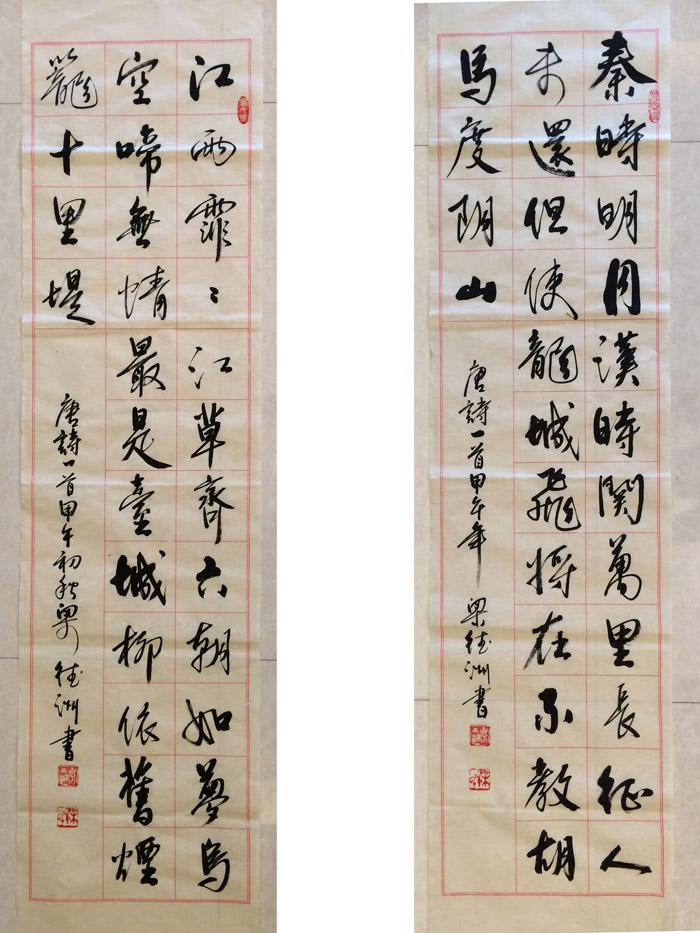 秦時明月漢時関萬里長征人
未還但使龍城飛将在不教胡
馬度阴山
唐詩一首甲午年 梁德洲書
江雨霏〻江草齊六朝如夢鳥
空啼無情最是臺城柳依舊煙
籠十里堤
唐詩一首甲午初秋梁德洲書